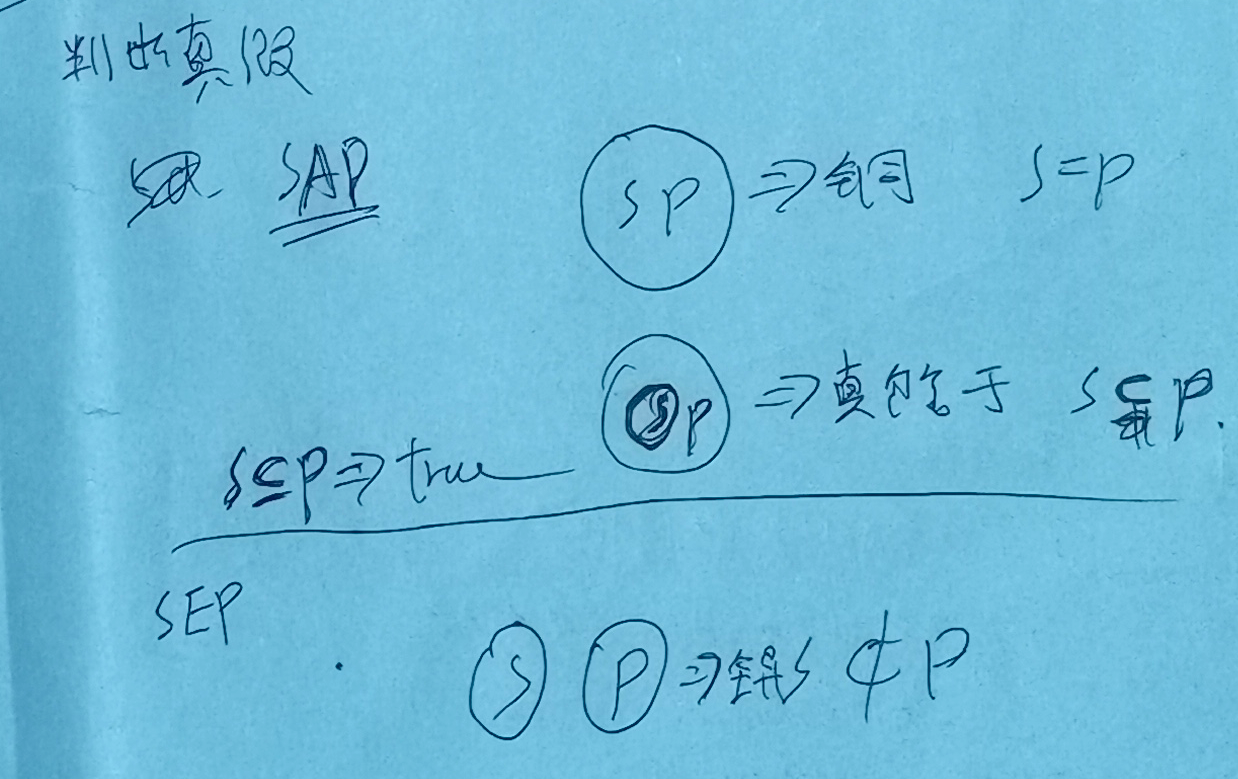 判断真假
SAP
SP ⇒ 全同 S=P
SP ⇒ 真包含于 S⊊P.
S⊆P ⇒ true
SEP
S P ⇒ 全异 S ⊄ P